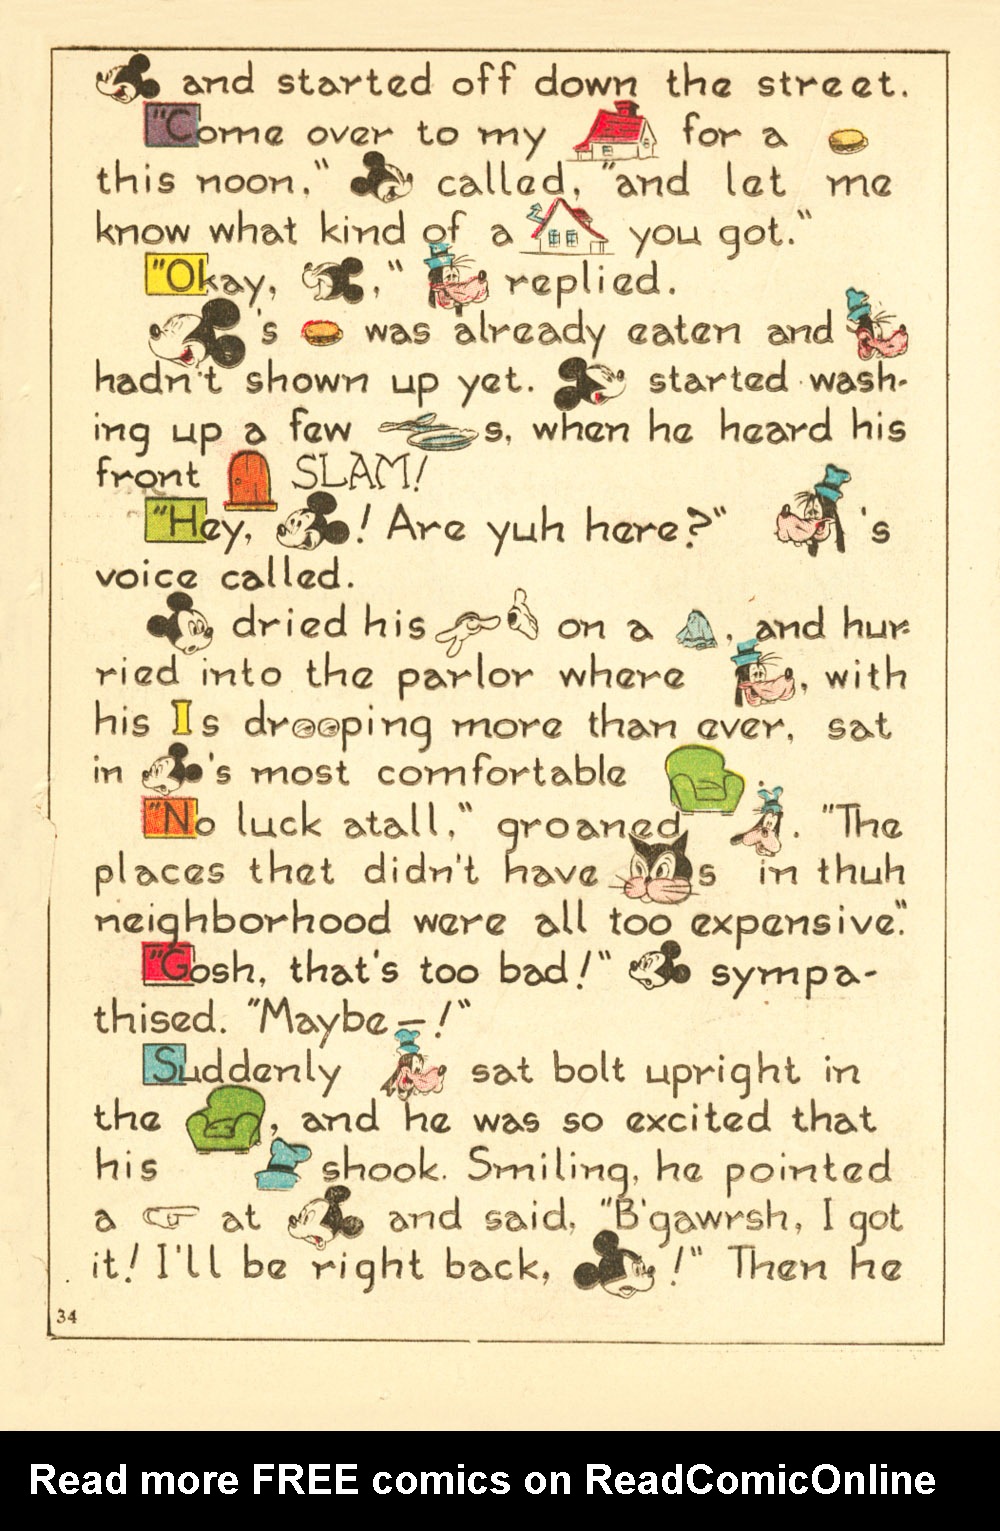 and started off down the street.
"Come over to my for a
this noon," called, "and let me
know what kind of a you got."
"Okay, ," replied.
's was already eaten and
hadn't shown up yet. started wash-
ing up a few s, when he heard his
front SLAM!
"Hey, ! Are yuh here?" 's
voice called.
dried his on a , and hur-
ried into the parlor where , with
his I s drooping more than ever, sat
in 's most comfortable .
"No luck atall," groaned . "The
places thet didn't have s in thuh
neighborhood were all too expensive."
"Gosh, that's too bad!" sympa-
thised. "Maybe—!"
Suddenly sat bolt upright in
the , and he was so excited that
his shook. Smiling, he pointed
a at and said, "B'gawrsh, I got
it! I'll be right back, !" Then he
34
Read more FREE comics on ReadComicOnline